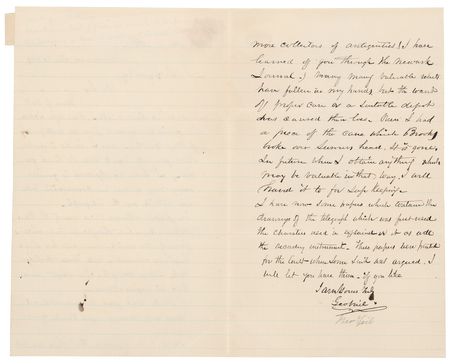 more collectors of antiquities! I have
learned of you through the Newark
Journal. Many many valuable relics
have fallen in my hands but the want
of proper care or a suitable depot
has caused their loss. Once I had
a piece of the cane which Brooks
broke over Sumners head. It is gone.
In future when I obtain anything which
may be valuable in that way, I will
hand it to for safe keeping.
I have now some papers which contain the
drawings of the telegraph which was first used
the characters used is explained in it as
the recording instrument. These papers were printed
for the Court when some suit was argued. I
will let you have them. If you like
I am Yours Truly
Geo